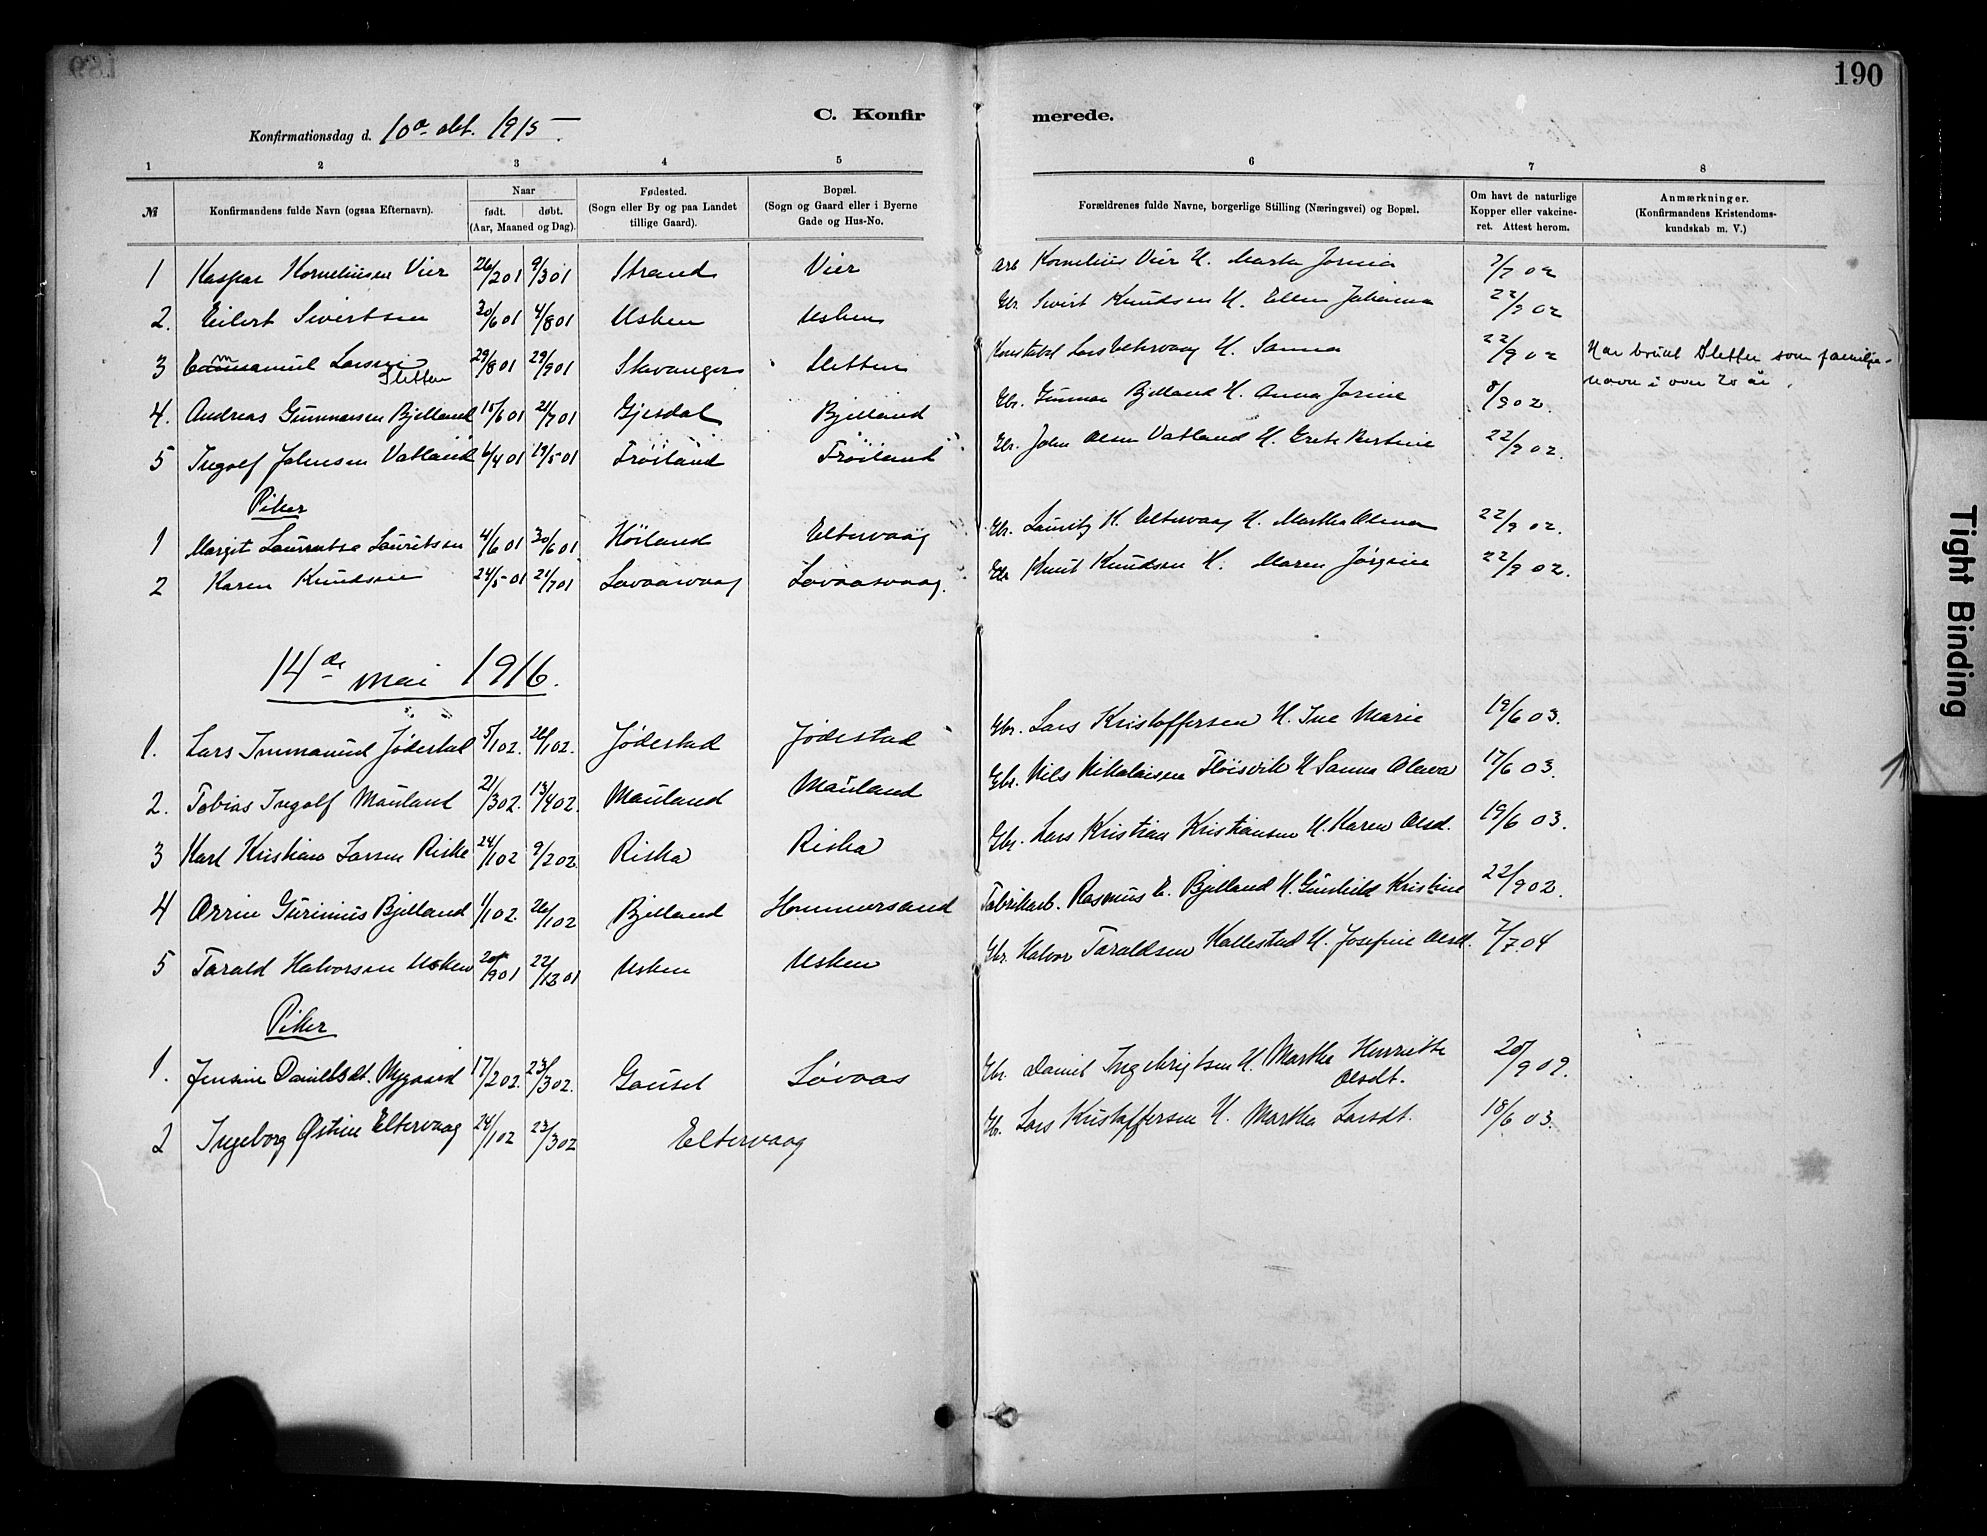 189
190
C. Konfir merede.
Konfirmationsdag d. 10de okt. 1915.
1 2 3 4 5 6 7 8
№ Konfirmandens fulde Navn (ogsaa Efternavn). Naar født. døbt. (Aar, Maaned og Dag). Fødested. (Sogn eller By og paa Landet tillige Gaard). Bopæl. (Sogn og Gaard eller i Byerne Gade og Hus-No. Forældrenes fulde Navne, borgerlige Stilling (Næringsvei) og Bopæl. Om havt de naturlige Kopper eller vakcineret. Attest herom. Anmærkninger. (Konfirmandens Kristendomskundskab m. V.)
1 Kaspar Korneliusen Vier 26/2 01 9/3 01 Strand Vier arb Kornelius Vier H. Marta Jorina 7/7 02
2. Eilert Sivertsen 30/6 01 4/8 01 Usken Usken Gbr. Sivert Knudsen H. Ellen Johanna 22/9 02
3 Emmanuel Larsen Sletten 29/8 01 29/9 01 Stavanger Sletten Konstabel Lars H. Sanna 22/9 02 Har brukt Sletten som familje-
navn i over 20 år.
4. Andreas Gunnarsen Bjelland 15/6 01 21/7 01 Gjesdal Bjelland Gbr. Gunnar Bjelland H. Anna Josine 8/9 02.
5 Ingolf Johnsen Vatland 6/4 01 19/5 01 Fröiland Fröiland Gbr. John Olsen Vatland H. Grete Bertine 22/9 02.
Piker
1 Margit Lauritsen 4/6 01 30/6 01 Höiland Eltervaag Gbr. Lauritz K. Eltervaag H. Martha Olena 22/9 02.
2 Karen Knudsen 24/5 01 21/7 01 Lovaasvaag Lovaasvaag. Gbr Knut Knudsen H. Maren Jørgine 22/9 02.
14de mai 1916.
1. Lars Immanuel Jødestad 5/1 02. 26/1 02. Jødestad Jødestad Gbr. Lars Kristoffersen H. Ine Marie 19/6 03.
2. Tobias Ingolf Mauland 21/3 02. 13/4 02. Mauland Mauland Gbr. Nils Nikolaisen Fløisvik H Sanna Oleva 17/6 03.
3 Karl Kristian Larsen Riske 24/1 02 9/2 02 Riska Riska Gbr. Lars Kristian Kristiansen H. Karen Olsd. 19/6 03.
4 Arrin Gurinius Bjelland 1/1 02. 26/1 02 Bjelland Hommersand Fabrikarb. Rasmus E. Bjelland H. Gunhild Kristine 22/9 02.
5 Tarald Halvorsen Usken 20/9 01 22/12 01 Usken Usken Gbr. Halvor Taraldsen Hallestad H. Josefine Olsd. 7/7 04
Piker
1. Jensine Danielsdt. Nygaard 17/2 02. 23/3 02. Gausel Løvaas Gbr. Daniel Ingebrigtsen H. Martha Henriette Olsdt. 20/9 09.
2 Ingeborg Østine Eltervaag 24/1 02 23/3 02 Eltervaag Gb. Lars Kristoffersen H. Martha Larsdt. 18/6 03.
Tight Binding